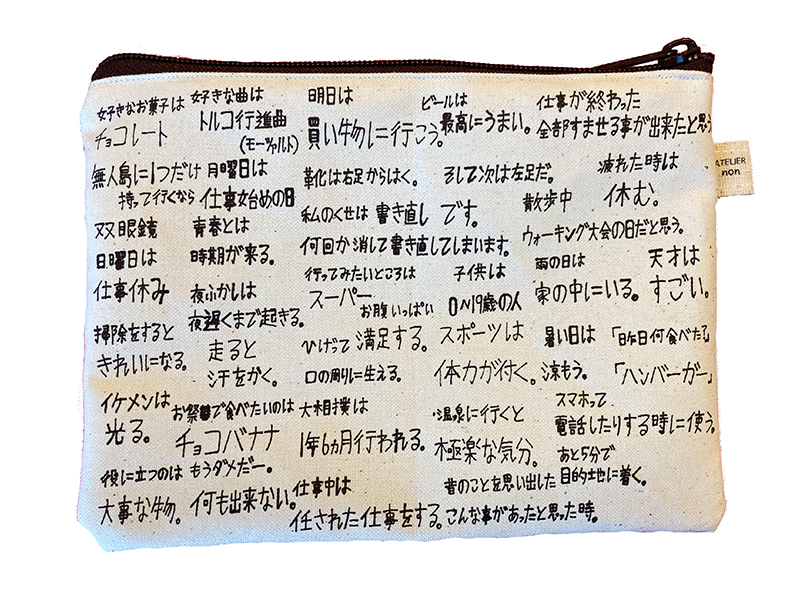 好きなお菓子は
チョコレート
無人島に1つだけ
持って行くなら
双眼鏡
日曜日は
仕事休み
掃除をすると
きれいになる。
イケメンは
光る。
役に立つのは
大事な物。
好きな曲は
トルコ行進曲
(モーツァルト)
月曜日は
仕事始めの日
青春とは
時期が来る。
夜ふかしは
夜遅くまで起きる。
走ると
汗をかく。
お祭りで食べたいのは
チョコバナナ
もうダメだー。
何も出来ない。
明日は
買い物に行こう。
靴は右足からはく。
私のくせは 書き直し です。
何回か消して書き直してしまいます。
行ってみたいところは
スーパー
お腹いっぱい
満足する。
ひげって
口の周りに生える。
大相撲は
1年6ヵ月行われる。
仕事中は
任された仕事をする。
ビールは
最高にうまい。
そして次は左足だ。
子供は
0〜19歳の人
スポーツは
体力が付く。
温泉に行くと
極楽な気分。
昔のことを思い出した
こんな事があったと思った時。
仕事が終わった
全部すませる事が出来たと思う
疲れた時は
休む。
散歩中
ウォーキング大会の日だと思う。
雨の日は
家の中にいる。
天才は
すごい。
暑い日は
涼もう。
「昨日何食べた?」
「ハンバーガー」
スマホって
電話したりする時に使う。
あと5分で
目的地に着く。
ATELIER
non